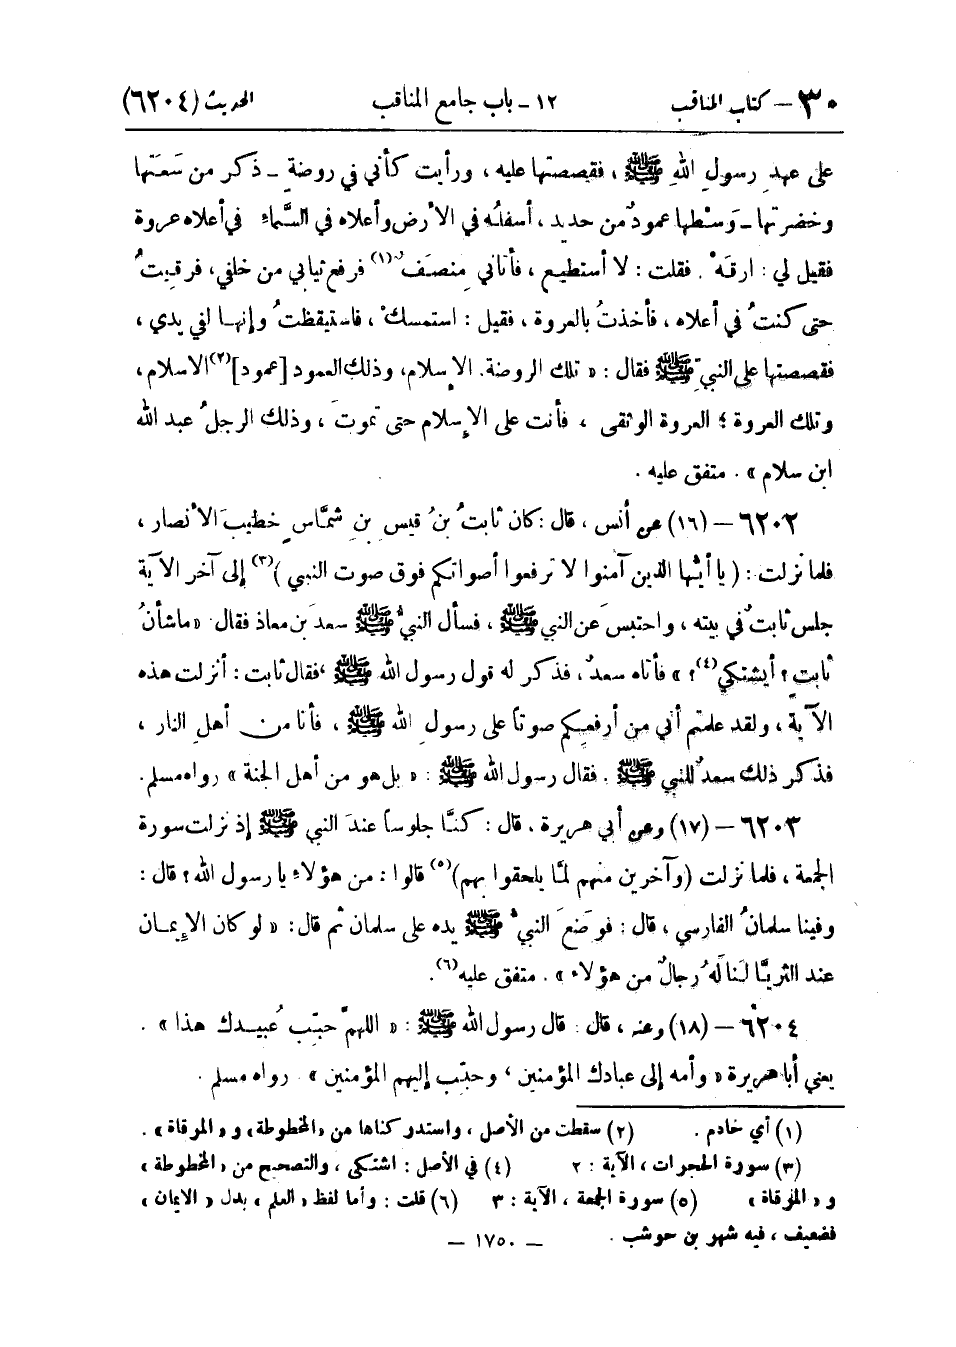 ٣٠ – كتاب المناقب ١٢ – باب جامع المناقب الحديث (٦٢٠٤)
على عهدِ رسولِ اللهِ ﷺ ، فقصصتها عليه ، ورأيت كأني في روضةٍ – ذكر من سَعَتها
وخضرتها – وَسْطها عمودٌ من حديد ، أسفلُه في الأرض وأعلاه في السَّماءِ في أعلاه عروة
فقيل لي : ارقَهْ . فقلت : لا أستطيع ، فأتاني مِنصَف (١) فرفع ثيابي من خلفي ، فرقيتُ
حتى كنتُ في أعلاه ، فأخذتُ بالعروة ، فقيل : استمسكْ ، فاستيقظتُ وإنها لفي يدي ،
فقصصتها على النبيِّ ﷺ فقال : « تلك الروضة. الإسلام، وذلك العمود [عمود](٢) الاسلام ،
وتلك العروة ؛ العروة الوثقى ، فأنت على الإسلام حتى تموتَ ، وذلك الرجلُ عبد الله
ابن سلام » . متفق عليه .
٦٢٠٢ – (١٦) عن أنس ، قال : كان ثابتُ بنُ قيسِ بنِ شمَّاسٍ خطيبَ الأنصار ،
فلما نزلت : ( يا أيُّها الذين آمنوا لا ترفعوا أصواتكم فوق صوت النبي )(٣) إلى آخر الآية
جلس ثابتٌ في بيته ، واحتبسَ عن النبي ﷺ ، فسأل النبيُّ ﷺ سعدَ بن معاذ فقال : « ما شأنُ
ثابتٍ ؟ أيشتكي(٤) ؟ » فأتاه سعدٌ ، فذكر له قول رسول الله ﷺ ، فقال ثابت : أُنزلت هذه
الآيةُ ، ولقد علمتم أني من أرفعِكم صوتاً على رسولِ اللهِ ﷺ ، فأنا من أهلِ النار ،
فذكر ذلك سعدٌ للنبي ﷺ . فقال رسول الله ﷺ : « بل هو من أهل الجنة » رواه مسلم.
٦٢٠٣ – (١٧) وعن أبي هريرة ، قال : كنَّا جلوساً عندَ النبي ﷺ إذ نزلت سورة
الجمعة ، فلما نزلت (وآخرين منهم لمَّا يلحقوا بهم)(٥) قالوا : من هؤلاءِ يا رسول الله ؟ قال :
وفينا سلمانُ الفارسي ، قال : فوضَعَ النبيُّ ﷺ يده على سلمان ثم قال : « لو كان الإيمان
عند الثريَّا لَنالَهُ رجالٌ من هؤلاء » . متفق عليه(٦).
٦٢٠٤ – (١٨) وعنه ، قال : قال رسول الله ﷺ : « اللهمَّ حبِّب عُبيدك هذا » .
يعني أبا هريرة « وأمه إلى عبادك المؤمنين ، وحبِّب إليهم المؤمنين » . رواه مسلم .
(١) أي خادم . (٢) سقطت من الأصل ، واستدركناها من «المخطوطة» و «المرقاة» .
(٣) سورة الحجرات ، الآية : ٢ (٤) في الأصل : اشتكى ، والتصحيح من «المخطوطة»
و «المرقاة» (٥) سورة الجمعة ، الآية : ٣ (٦) قلت : وأما لفظ « العلم » بدل « الايمان »
فضعيف ، فيه شهر بن حوشب .
– ١٧٥٠ –